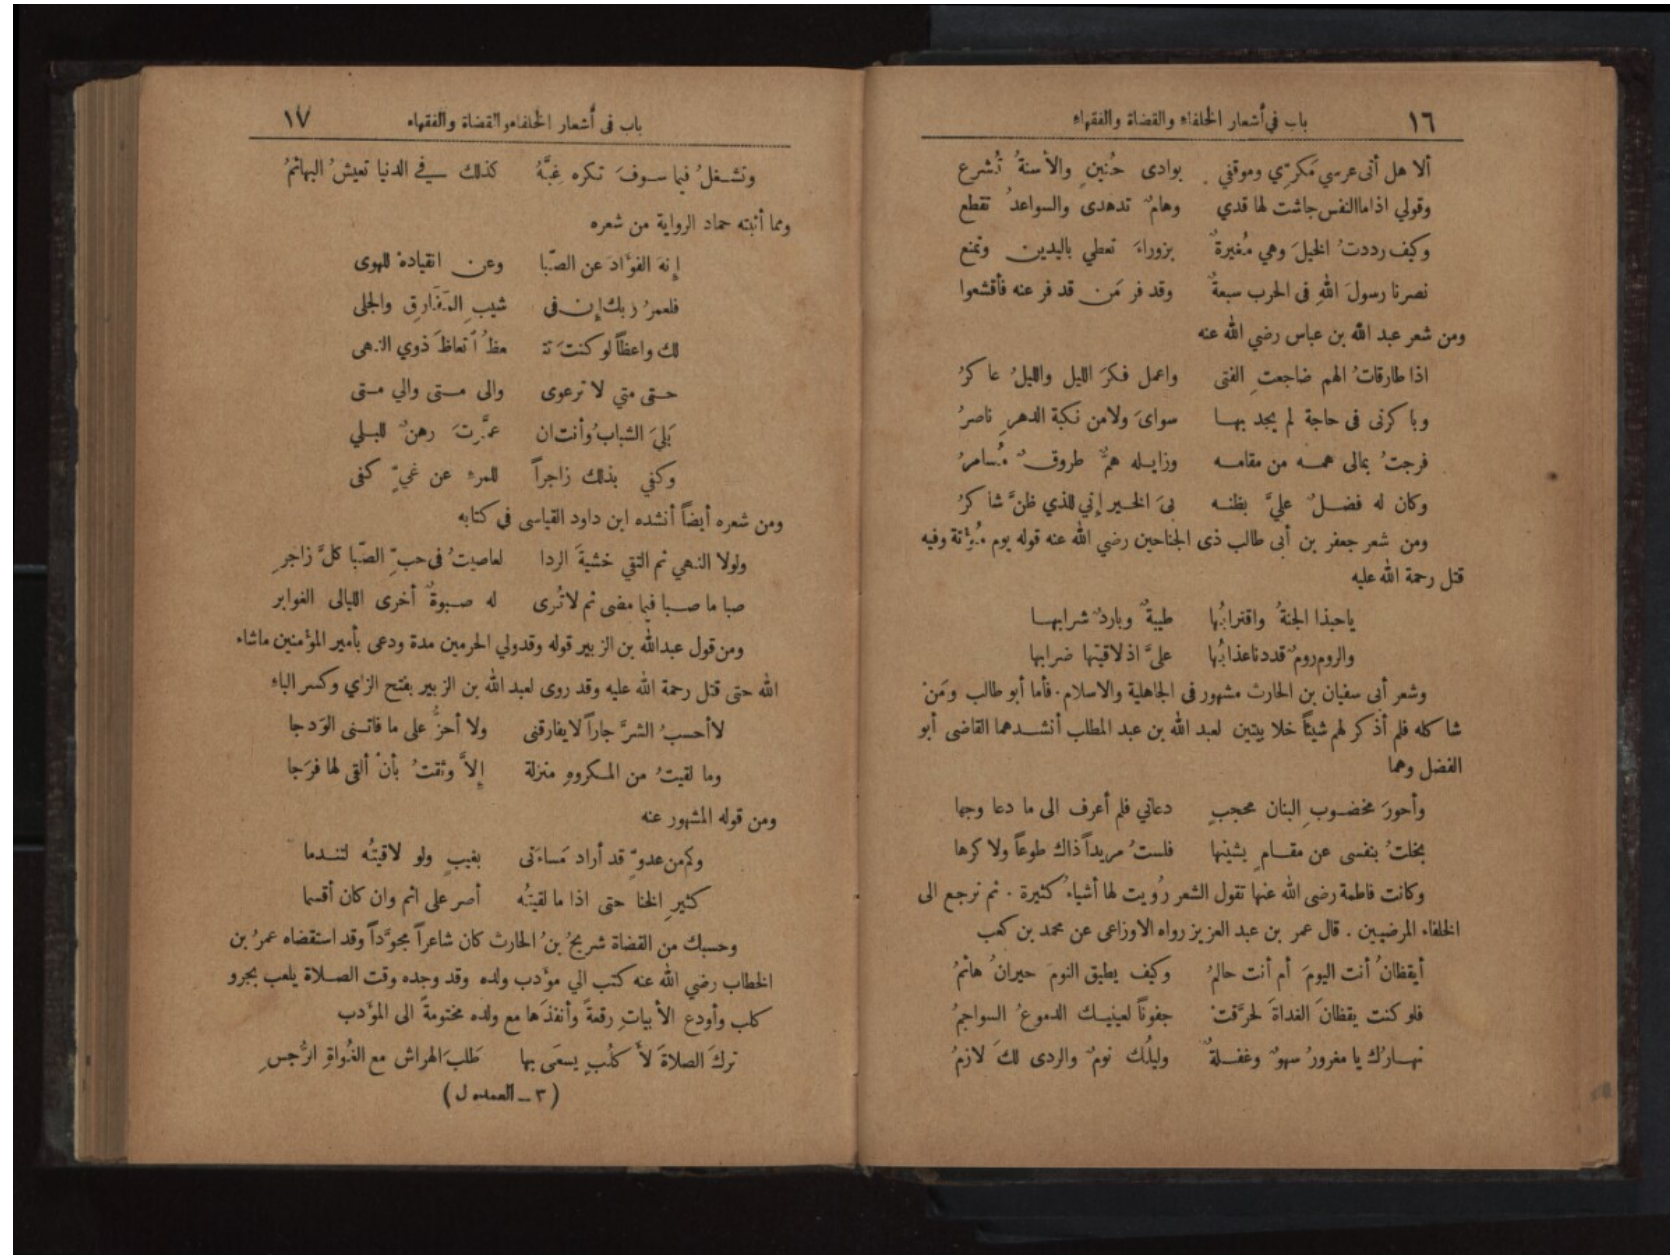 ١٦ باب في أشعار الخلفاء والقضاة والفقهاء
ألا هل أتى عرسي مَكرّي وموقفي بوادى حُنينٍ والأسنةُ تُشرع
وقولي اذا ماالنفس جاشت لها قدي وهامٌ تدهدى والسواعدُ تقطع
وكيف رددتُ الخيلَ وهي مُغيرةٌ بزوراءَ تعطي باليدين وتمنع
نصرنا رسولَ اللهِ فى الحرب سبعةٌ وقد فر مَن قد فر عنه فأقشعوا
ومن شعر عبد الله بن عباس رضي الله عنه
اذا طارقاتُ الهم ضاجعتِ الفتى واعمل فكرَ الليل والليلُ عاكرُ
وباكرنى فى حاجة لم يجد بهـا سواىَ ولامن نكبة الدهرِ ناصرُ
فرجتُ بمالى همـه من مقامـه وزايـله همٌّ طروقٌ مُسامرُ
وكان له فضـلٌ عليَّ بظنـه بىَ الخـير إني للذي ظنَّ شاكرُ
ومن شعر جعفر بن أبى طالب ذى الجناحين رضي الله عنه قوله يوم مُؤتة وفيه
قتل رحمة الله عليه
ياحبذا الجنةُ واقترابُها طيبةٌ وباردٌ شرابهـا
والروم رومٌ قددنا عذابُها علىَّ اذ لاقيتها ضرابها
وشعر أبى سفيان بن الحارث مشهور فى الجاهلية والاسلام. فأما أبو طالب ومَنْ
شاكله فلم أذكر لهم شيئاً خلا بيتين لعبد الله بن عبد المطلب أنشـدهما القاضى أبو
الفضل وهما
وأحورَ مخضـوبِ البنان محجبٍ دعاني فلم أعرف الى ما دعا وجها
بخلتُ بنفسى عن مقـامٍ يشينها فلستُ مريداً ذاك طوعاً ولا كرها
وكانت فاطمة رضى الله عنها تقول الشعر رُويت لها أشياءُ كثيرة . ثم نرجع الى
الخلفاء المرضيين . قال عمر بن عبد العزيز رواه الاوزاعى عن محمد بن كعب
أيقظانُ أنت اليومَ أم أنت حالمُ وكيف يطيق النومَ حيرانُ هائمُ
فلو كنت يقظانَ الغداةَ لحرَّقتْ جفوناً لعينيـك الدموعُ السواجمُ
نهـارُك يا مغرورُ سهوٌ وغفـلةٌ وليلُك نومٌ والردى لكَ لازمُ
باب فى أشعار الخلفاء والقضاة والفقهاء ١٧
وتشـغلُ فيما سـوفَ تكره غِبَّهُ كذلك في الدنيا تعيشُ البهائمُ
ومما أثبته حماد الرواية من شعره
إنهَ الفؤادَ عن الصّبا وعن انقيادهْ للهوى
فلعمرُ ربك إن فى شيبِ المَفارِق والجلى
لك واعظاً لو كنتَ تـ عظُ اتعاظَ ذوي النهى
حـتى متي لا ترعوى والى مـتى والي مـتى
بَلىَ الشبابُ وأنت ان عمِّرتَ رهنٌ للبـلي
وكفي بذلك زاجراً للمرء عن غيٍّ كفى
ومن شعره أيضاً أنشده ابن داود القياسى في كتابه
ولولا النهي ثم التقي خشيةَ الردا لعاصيتُ فى حبِّ الصّبا كلَّ زاجرِ
صبا ما صـبا فيما مضى ثم لاتُرى له صـبوةٌ أخرى الليالى الغوابر
ومن قول عبدالله بن الزبير قوله وقدولي الحرمين مدة ودعى بأمير المؤمنين ماشاء
الله حتى قتل رحمة الله عليه وقد روى لعبد الله بن الزبير بفتح الزاي وكسر الباء
لاأحسبُ الشرَّ جاراً لايفارقنى ولا أحزُّ على ما فاتـنى الوَدجا
وما لقيتُ من المـكروهِ منزلة إلاَّ وثقتُ بأنْ ألقى لها فرَجا
ومن قوله المشهور عنه
وكم من عدوٍّ قد أراد مَساءَتى بغيبٍ ولو لاقيتُه لتنـدما
كثيرِ الخنا حتى اذا ما لقيتُه أصر على اثم وان كان أقسما
وحسبك من القضاة شريحُ بنُ الحارث كان شاعراً مجوّداً وقد استقضاه عمرُ بن
الخطاب رضي الله عنه كتب الي مؤدب ولده وقد وجده وقت الصـلاة يلعب بجرو
كلب وأودع الأبياتِ رقعةً وأنفذَها مع ولده مختومةً الى المؤدب
تركَ الصلاةَ لأكلُبٍ يسعَى بها طَلبَ الهراش مع الغُواةِ الرُّجسِ
(٣ ــ العمده ل)